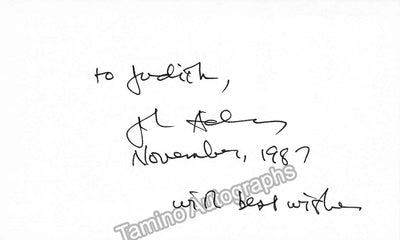 to Judith,
John Adams
November, 1987
with best wishes
Tamino Autographs